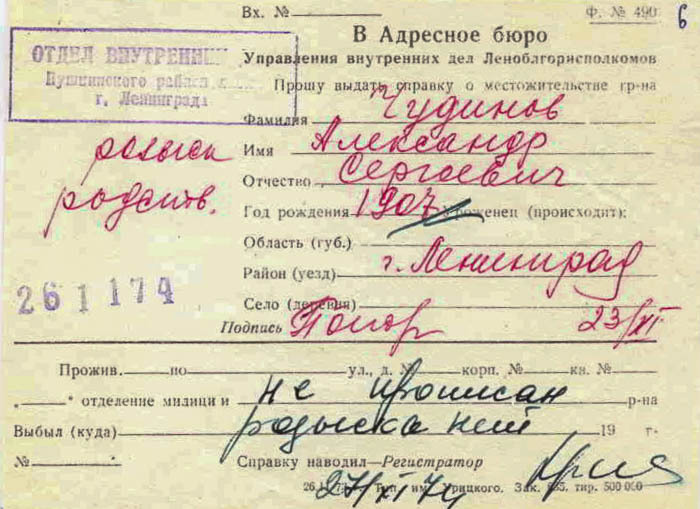 Вх. № Ф. № 490 6
В Адресное бюро
Управления внутренних дел Леноблгорисполкомов
ОТДЕЛ ВНУТРЕННИХ
Пушкинского района
г. Ленинграда
Прошу выдать справку о местожительстве гр-на
Фамилия Чудинов
Имя Александр
Отчество Сергеевич
розыск
родств.
Год рождения 1907 Уроженец (происходит):
Область (губ.)
Район (уезд) г. Ленинград
261174
Село (деревня)
Подпись 23/XI
Прожив. по ул., д. № корп. № кв. №
„ " отделение милиции не прописан р-на
Выбыл (куда) розыска нет 19 г.
№ Справку наводил—Регистратор
27/XI 74
им. Урицкого. Зак. тир. 500 000